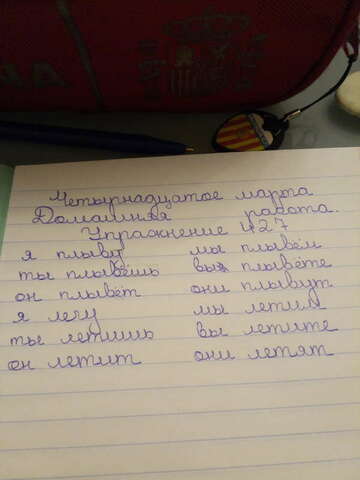 Четырнадцатое марта
Домашняя работа.
Упражнение 427
я плыву мы плывём
ты плывёшь вы плывёте
он плывёт они плывут
я лечу мы летим
ты летишь вы летите
он летит они летят